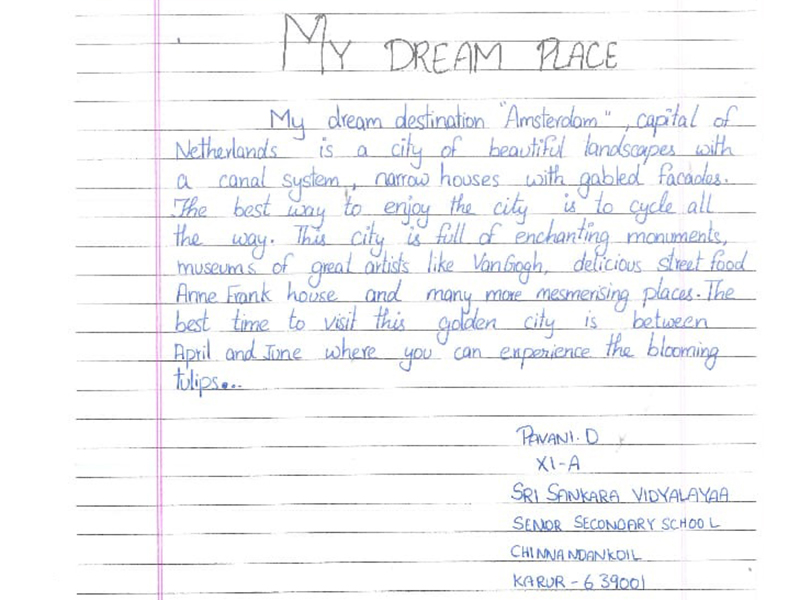 MY DREAM PLACE
My dream destination "Amsterdam", capital of
Netherlands is a city of beautiful landscapes with
a canal system, narrow houses with gabled facades.
The best way to enjoy the city is to cycle all
the way. This city is full of enchanting monuments,
museums of great artists like VanGogh, delicious street food
Anne Frank house and many more mesmerising places. The
best time to visit this golden city is between
April and June where you can experience the blooming
tulips...
PAVANI. D
XI-A
SRI SANKARA VIDYALAYAA
SENOR SECONDARY SCHOOL
CHINNANDANKOIL
KARUR - 639001